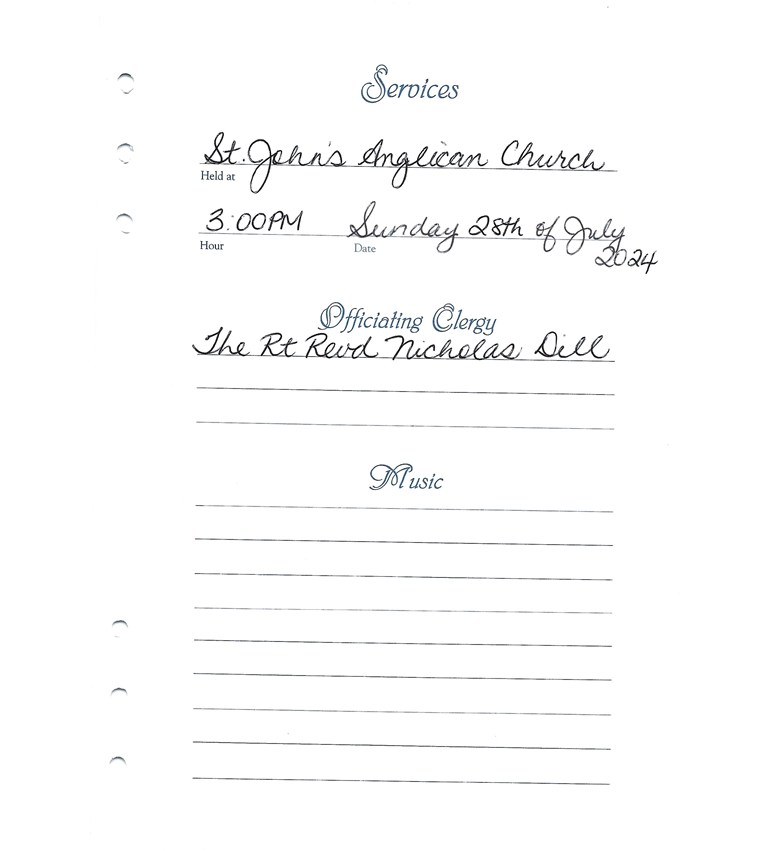 Services
St. John's Anglican Church
Held at
3:00PM Sunday 28th of July
2024
Hour Date
Officiating Clergy
The Rt Revd Nicholas Dill
Music